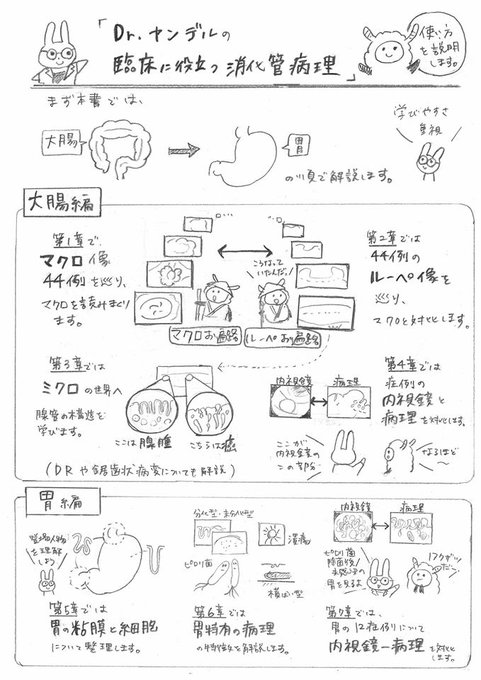 「Dr.ヤンデルの
臨床に役立つ消化管病理」
使い方
を説明
します。
まず本書では、
大腸
胃
の順で解説します。
学びやすさ
重視
大腸編
第1章で
マクロ像
44例を巡り、
マクロを読みまくり
ます。
こうなって
いたんだ!
マクロお遍路
ルーペお遍路
第2章では
44例の
ルーペ像を
巡り、
マクロと対比します。
第3章では
ミクロの世界へ
腺管の構造を
学びます。
ここは腺腫
こちらは癌
(DRや色調症状病変についても解説)
内視鏡
病理
ここが
内視鏡の
この部分
なるほど〜
第4章では
症例の
内視鏡と
病理を対比します。
胃編
登場人物
を理解
しよう
第5章では
胃の粘膜と細胞
について整理します。
分化型・未分化型
潰瘍
ピロリ菌
横ばい型
第6章では
胃特有の病理
の特徴を解説します。
内視鏡
病理
ピロリ菌
除菌後/
未感染の
胃を見るよ
第7章では、
胃の12症例について
内視鏡ー病理を対比
します。